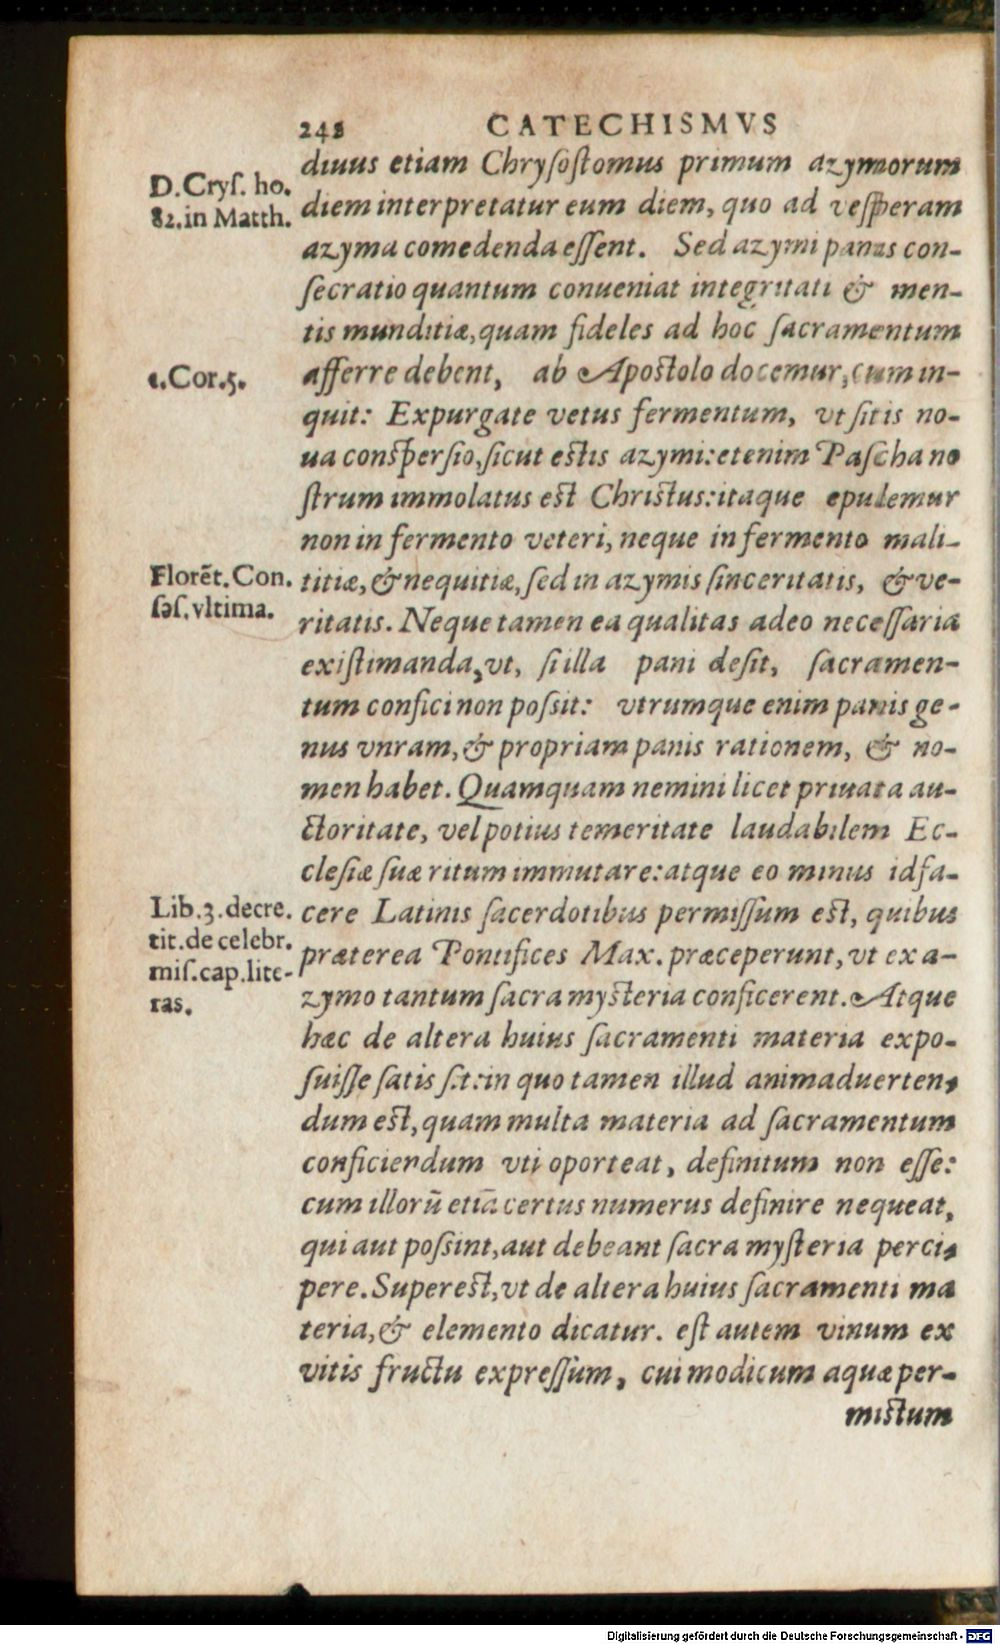 242 CATECHISMVS
D. Cryſ. ho.
82. in Matth.
diuus etiam Chryſoſtomus primum azymorum
diem interpretatur eum diem, quo ad veſperam
azyma comedenda eſſent. Sed azymi panis con-
ſecratio quantum conueniat integritati & men-
tis munditiæ, quam fideles ad hoc ſacramentum
1. Cor. 5.
afferre debent, ab Apoſtolo docemur, cum in-
quit: Expurgate vetus fermentum, vt ſitis no-
ua conſperſio, ſicut eſtis azymi: etenim Paſcha no
ſtrum immolatus eſt Chriſtus: itaque epulemur
non in fermento veteri, neque in fermento mali-
Florēt. Con.
ſeſ. vltima.
titiæ, & nequitiæ, ſed in azymis ſinceritatis, & ve-
ritatis. Neque tamen ea qualitas adeo neceſſaria
exiſtimanda, vt, ſi illa pani deſit, ſacramen-
tum confici non poſsit: vtrumque enim panis ge-
nus vnram, & propriam panis rationem, & no-
men habet. Quamquam nemini licet priuata au-
ctoritate, vel potius temeritate laudabilem Ec-
cleſiæ ſuæ ritum immutare: atque eo minus id fa-
Lib. 3. decre.
tit. de celebr.
miſ. cap. lite-
ras.
cere Latinis ſacerdotibus permiſſum eſt, quibus
præterea Pontifices Max. præceperunt, vt ex a-
zymo tantum ſacra myſteria conficerent. Atque
hæc de altera huius ſacramenti materia expo-
ſuiſſe ſatis ſit: in quo tamen illud animaduerten-
dum eſt, quam multa materia ad ſacramentum
conficiendum vti oporteat, definitum non eſſe:
cum illorū etiā certus numerus definire nequeat,
qui aut poſsint, aut debeant ſacra myſteria perci-
pere. Supereſt, vt de altera huius ſacramenti ma
teria, & elemento dicatur. eſt autem vinum ex
vitis fructu expreſſum, cui modicum aquæ per-
miſtum
Digitalisierung gefördert durch die Deutsche Forschungsgemeinschaft - DFG